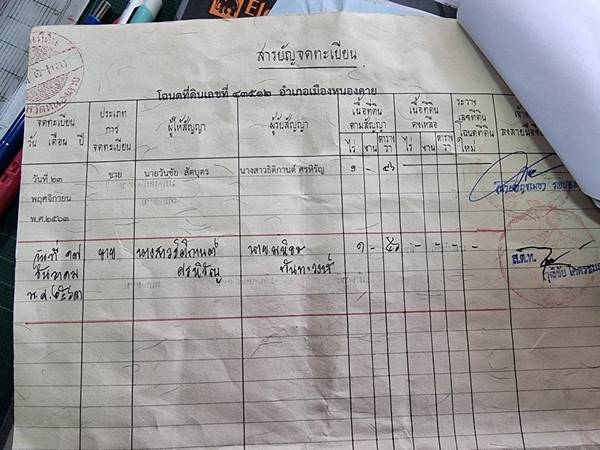 สารบัญจดทะเบียน
โฉนดที่ดินเลขที่ ๔๓๕๑๒ อำเภอเมืองหนองคาย
จดทะเบียน
วัน เดือน ปี
ประเภท
การ
จดทะเบียน
ผู้ให้สัญญา
ผู้รับสัญญา
เนื้อที่ดิน
ตามสัญญา
ไร่ งาน ตาราง
วา
เนื้อที่ดิน
คงเหลือ
ไร่ งาน ตาราง
วา
ระวาง
เลขที่ดิน
โฉนดที่ดิน
ใหม่
วันที่ ๒๓
พฤศจิกายน
พ.ศ.๒๕๖๓
ขาย
นายวันชัย สัตบุตร
นางสาวธิติกานต์ ศรหิรัญ
๑ - ๕๖
วันที่ ๑๗
ธันวาคม
พ.ศ.๒๕๖๓
ขาย
นางสาวธิติกานต์
ศรหิรัญ
๑ - ๕๖ - - - -